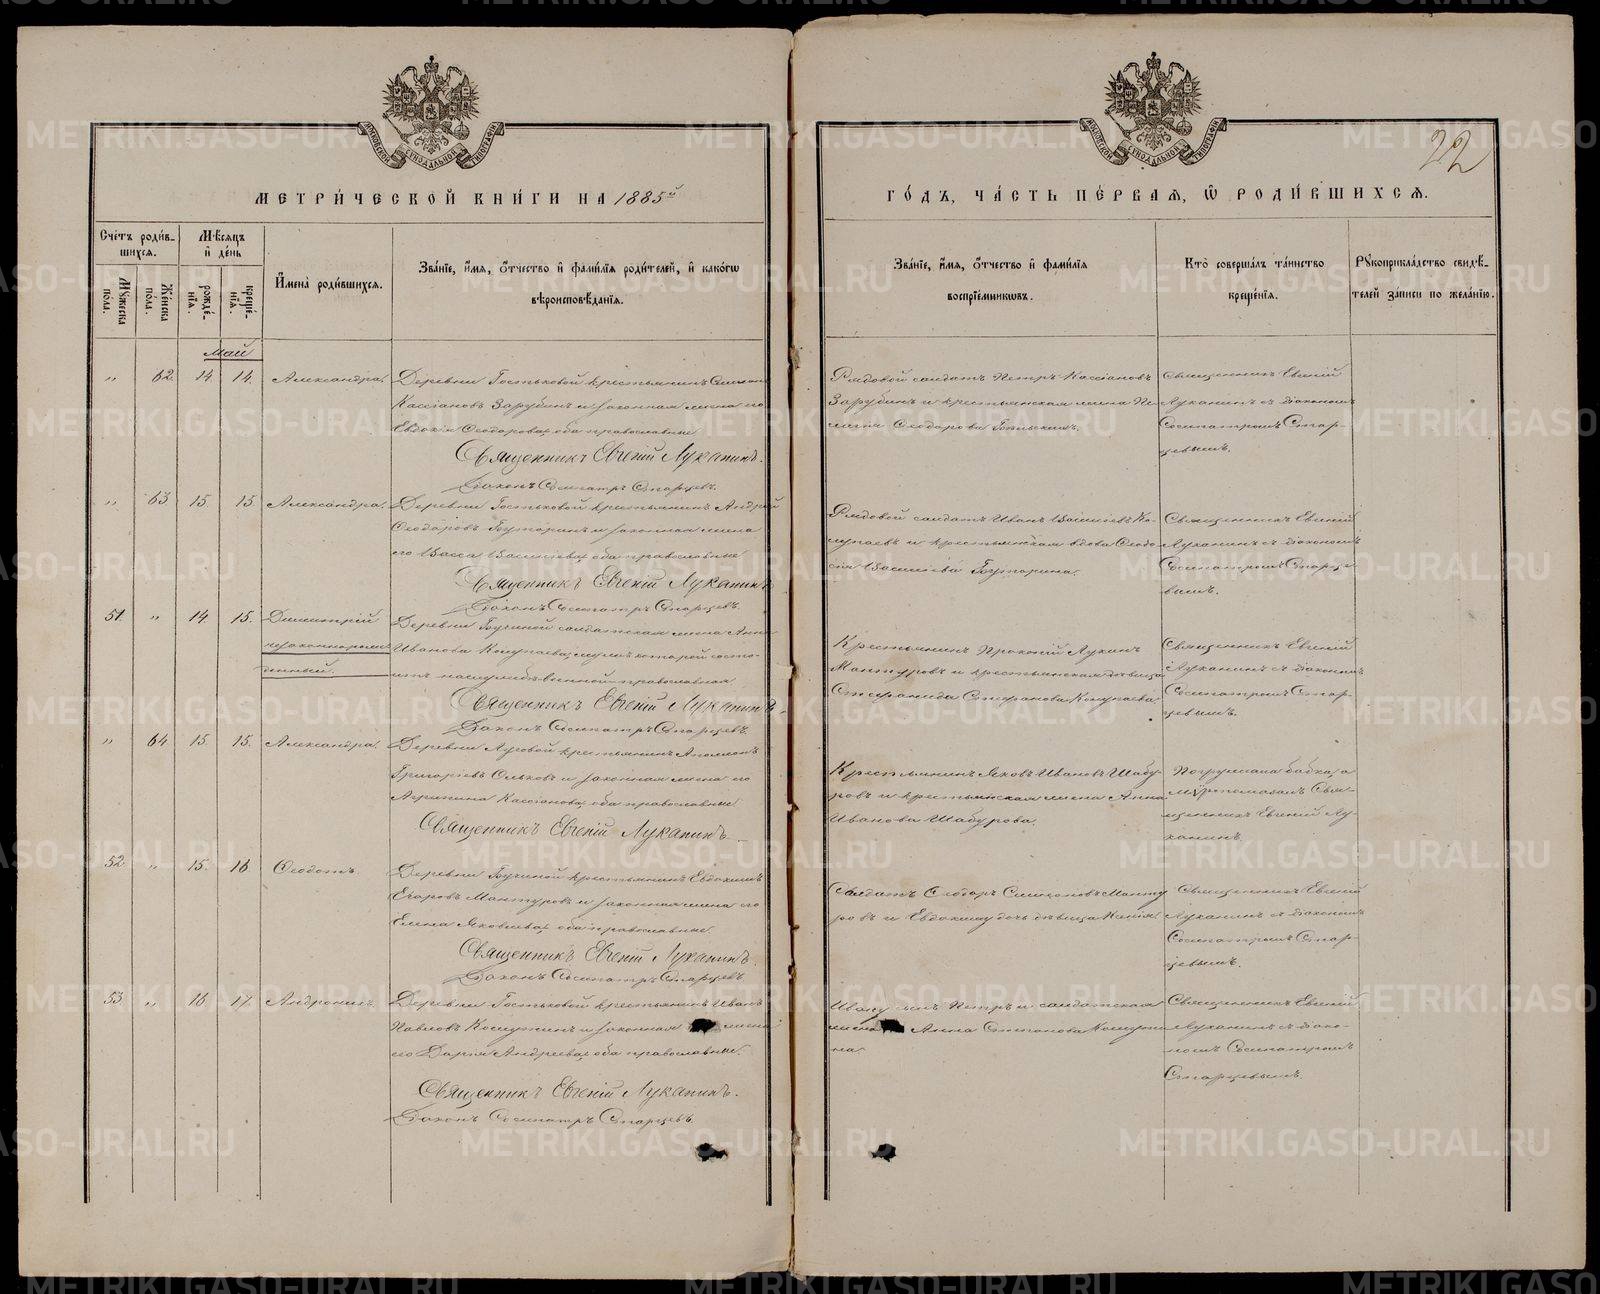 МОСКОВСКОЙ СѴНОДАЛЬНОЙ ТИПОГРАФІИ
МЕТРИ́ЧЕСКОЙ КНИ́ГИ НА 1885й
Сче́тъ роди́в-
шихся.
Мѣ́сяцъ
и҆ де́нь
Мꙋ́жеска
по́ла.
Же́нска
по́ла.
рожде́-
нїѧ.
креще́-
нїѧ.
И҆мена̀ роди́вшихся.
Зва́нїе, и҆́мѧ, ѻ҆́тчество и҆ фами́лїѧ роди́телей, и҆ како́гѡ
вѣроисповѣ́данїѧ.
Май
„ 62. 14. 14. Александра.
Деревни Гостьковой крестьянинъ Симеонъ
Кассіановъ Зарубинъ и законная жена его
Евдокія Ѳеодорова, оба православные
Священникъ Евгеній Луканинъ.
Діаконъ Сосипатръ Старцевъ.
„ 63. 15. 15. Александра.
Деревни Гостьковой крестьянинъ Андрей
Ѳеодоровъ и законная жена
его Васса Васильева, оба православные
Священникъ Евгеній Луканинъ
Діаконъ Сосипатръ Старцевъ.
51. „ 14. 15. Димитрій
незаконнорож-
денный.
Деревни солдатская жена Анна
Иванова мужъ которой состо-
итъ православная
Священникъ Евгеній Луканинъ.
Діаконъ Сосипатръ Старцевъ.
„ 64. 15. 15. Александра.
Деревни Луговой крестьянинъ
Григоріевъ и законная жена его
Агрипина Кассіанова, оба православные
Священникъ Евгеній Луканинъ
52. „ 15. 16. Ѳеодотъ.
Деревни крестьянинъ Евдокимъ
Егоровъ Мантуровъ и законная жена его
Елена Яковлева, оба православные.
Священникъ Евгеній Луканинъ.
Діаконъ Сосипатръ Старцевъ.
53. „ 16. 17. Андроникъ.
Деревни Гостьковой крестьянинъ Иванъ
Павловъ и законная жена
его Дарія Андреева, оба православные.
Священникъ Евгеній Луканинъ.
Діаконъ Сосипатръ Старцевъ.
22
МОСКОВСКОЙ СѴНОДАЛЬНОЙ ТИПОГРАФІИ
ГО́ДЪ, ЧА́СТЬ ПЕ́РВАЯ, Ѽ РОДИ́ВШИХСЯ.
Зва́нїе, и҆́мѧ, ѻ҆́тчество и҆ фами́лїѧ
воспрїе́мникѡвъ.
Кто̀ соверша́лъ та́инство
креще́нїѧ.
Рꙋкоприкла́дство свидѣ́-
телей за́писи по жела́нїю.
Рядовой солдатъ Петръ Кассіановъ
Зарубинъ и крестьянская жена Пе-
лагія Ѳеодорова
Священникъ Евгеній
Луканинъ съ діакономъ
Сосипатромъ Стар-
цевымъ.
Рядовой солдатъ Иванъ Васильевъ
и крестьянская вдова Ѳеодо-
сія Васильева
Священникъ Евгеній
Луканинъ съ діакономъ
Сосипатромъ Старце-
вымъ.
Крестьянинъ Прокопій Лукинъ
Мантуровъ и крестьянская дѣвица
Стефанида Стефанова
Священникъ Евгеній
Луканинъ съ діакономъ
Сосипатромъ Стар-
цевымъ.
Крестьянинъ Яковъ Ивановъ Шабу-
ровъ и крестьянская жена Анна
Иванова Шабурова.
Погружала бабка, а
мѵропомазалъ Свя-
щенникъ Евгеній Лу-
канинъ.
Солдатъ Ѳеодоръ Симеоновъ Манту-
ровъ и Евдокиму дочь дѣвица
Священникъ Евгеній
Луканинъ съ діакономъ
Сосипатромъ Стар-
цевымъ.
Ивану сынъ Петръ и солдатская
жена Анна Степанова
Священникъ Евгеній
Луканинъ съ діако-
номъ Сосипатромъ
Старцевымъ.
METRIKI.GASO-URAL.RU